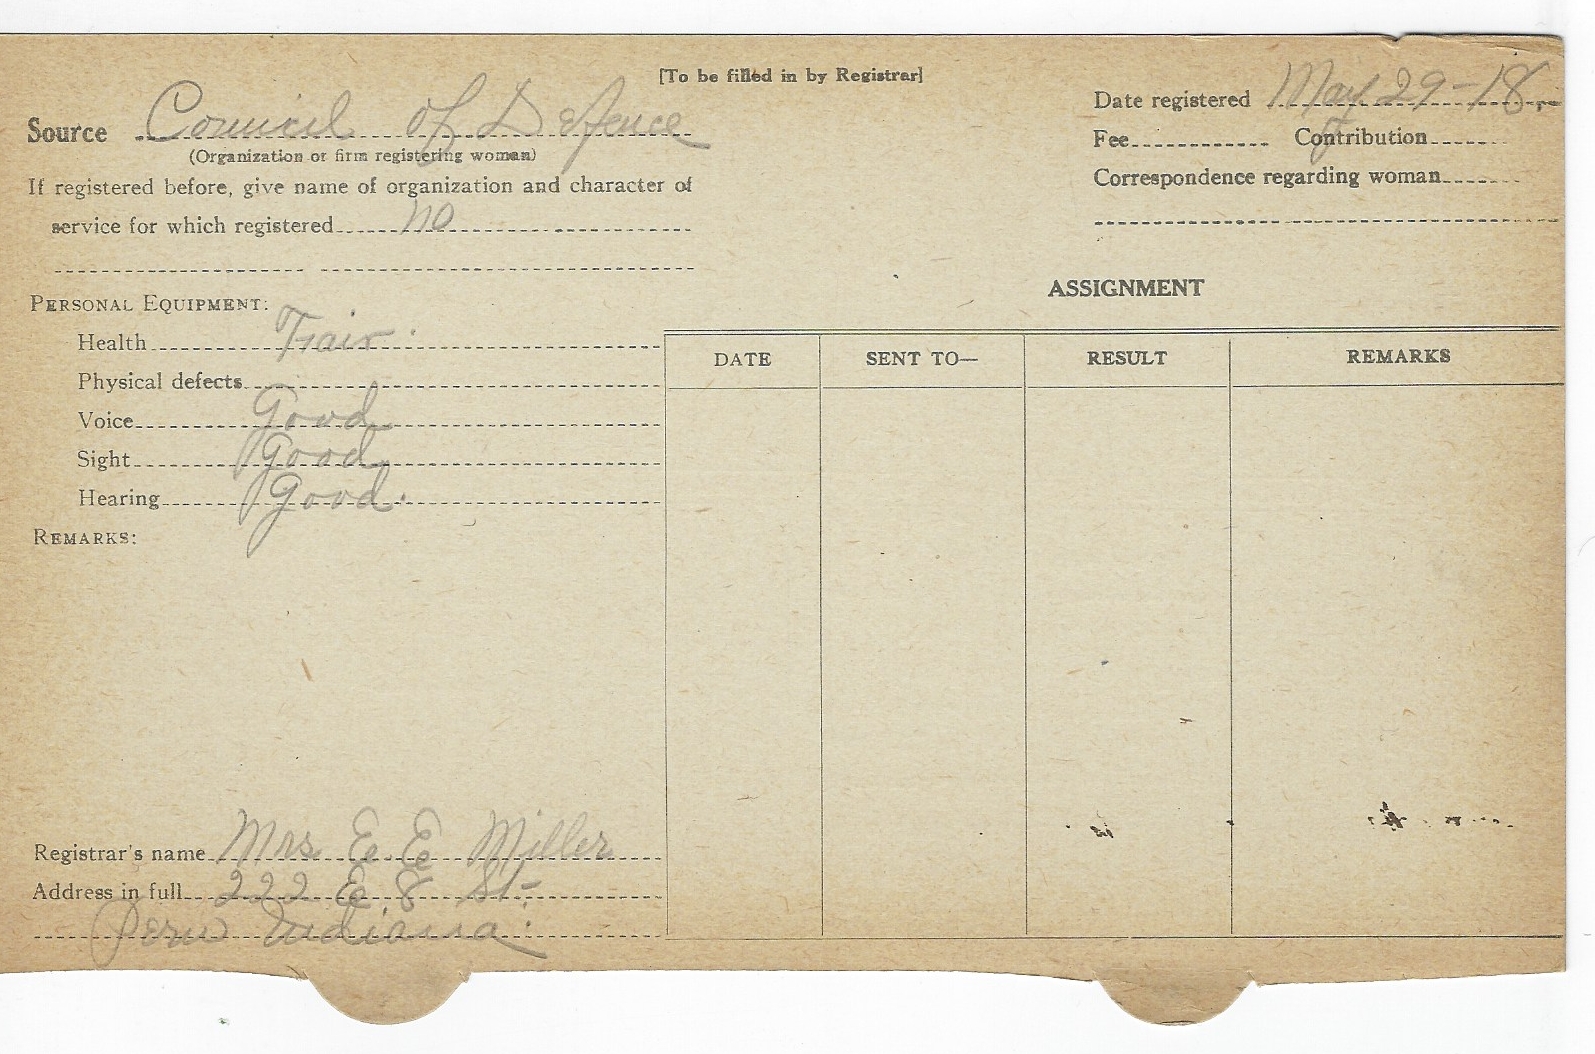 [To be filled in by Registrar]
Source Council of Defence
(Organization or firm registering woman)
If registered before, give name of organization and character of
service for which registered no
Date registered May 29-18
Fee Contribution
Correspondence regarding woman
PERSONAL EQUIPMENT:
Health Fair.
Physical defects
Voice Good
Sight Good
Hearing Good.
REMARKS:
ASSIGNMENT
DATE SENT TO— RESULT REMARKS
Registrar's name Mrs E E Miller
Address in full 222 E 8 St-
Peru Indiana.